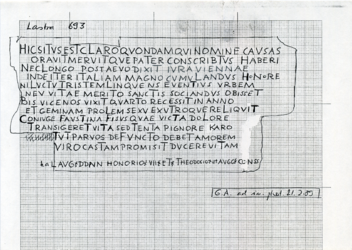 Lastra 693
HIC SITVS EST CLARO QVONDAM QVI NOMINE CAVSAS
ORAVIT MERVIT QVE PATER CONSCRIBTVS HABERI
NEC LONGO POST AEVO DIXIT IVRA VIENNAE
INDE ITER ITALIAM MAGNO CVMVLANDVS HONORE
NI LVCTV TRISTEM LINQVENS EVENTIVS VRBEM
NEV VITAE MERITO SANCTIS SOCIANDVS OBISSET
BIS VICENOS VIXIT QVARTO RECESSIT IN ANNO
ET GEMINAM PROLEM SEXV EX VTROQVE RELIQVIT
CONIVGE FAVSTINA FISVS QVAE VICTA DOLORE
TRANSIGERET VITA SED TENTA PIGNORE KARO
VT PARVOS DEFVNCTO DEBET AMOREM
VIRO CASTAM PROMISIT DVCERE VITAM
kal AVG DDNN HONORIO VII ET THEODOSIO II AVGG CONS